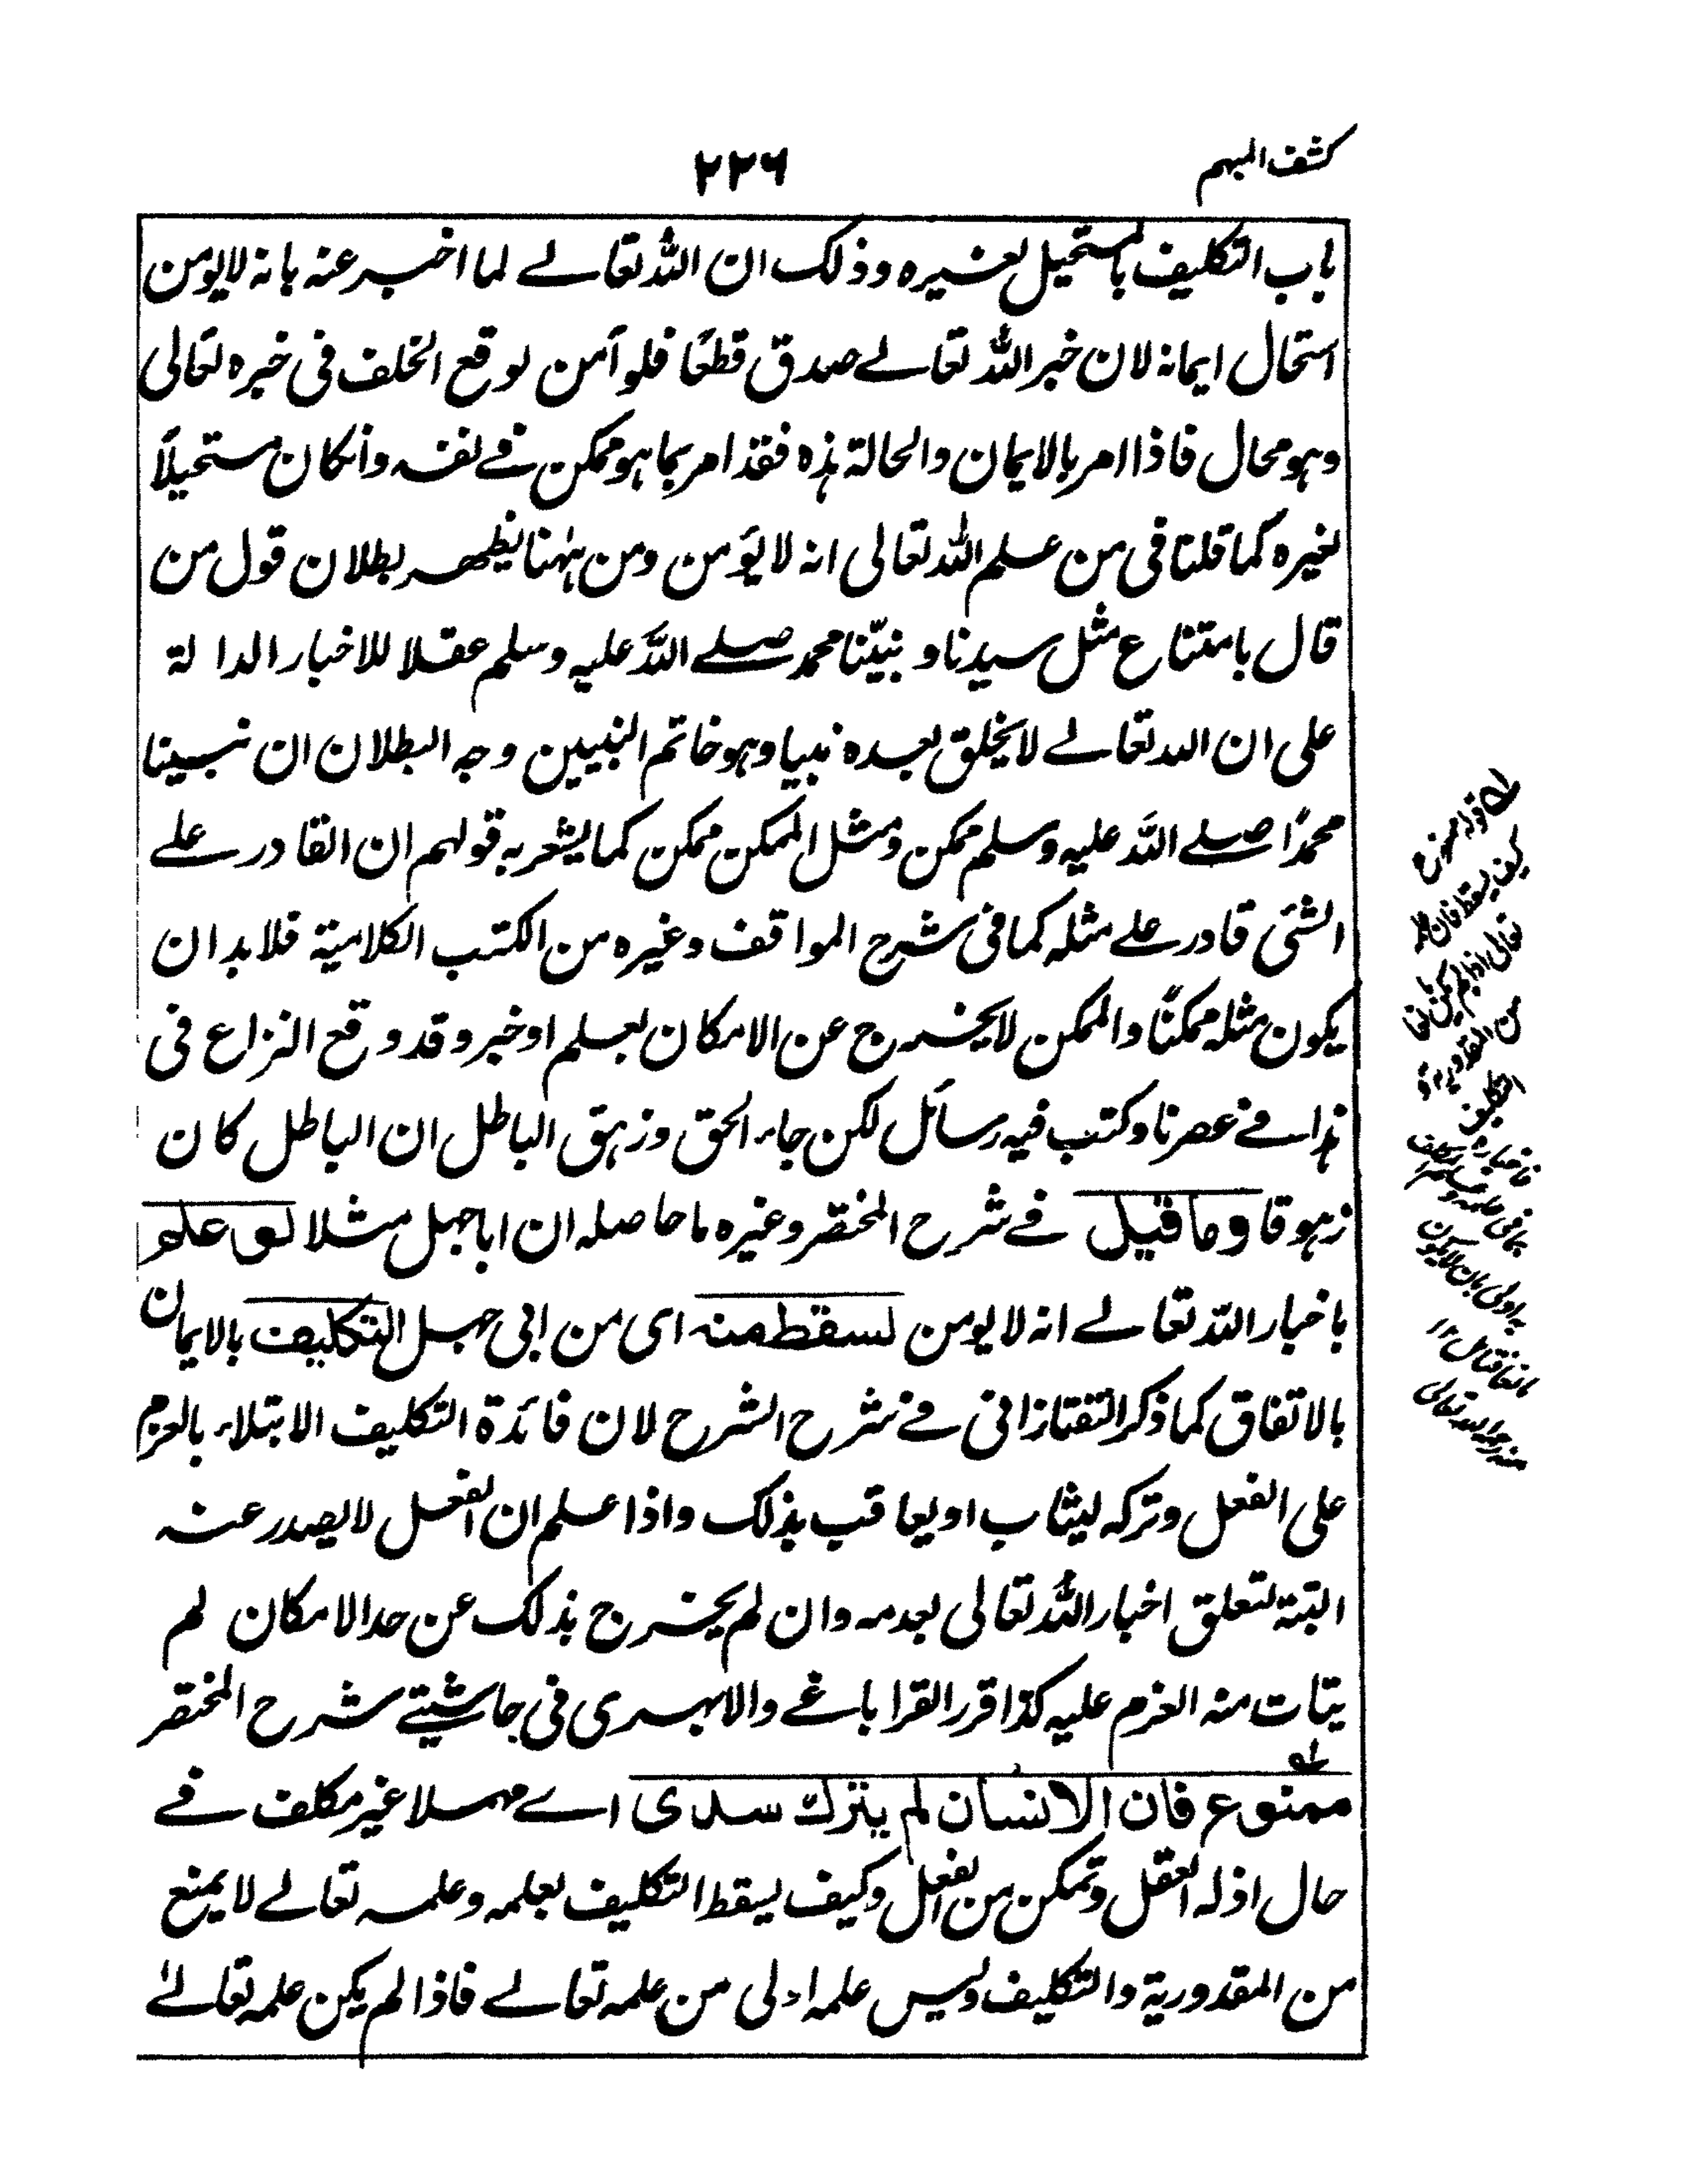 كشف المبهم
٢٢٦
باب التكليف بالمستحيل لغيره وذلك ان الله تعالے لما اخبر عنه بانه لايومن
استحال ايمانه لان خبر الله تعالے صدق قطعًا فلو آمن لوقع الخلف فى خبره تعالى
وهو محال فاذا امر بالايمان والحالة هذه فقد امر بما هو ممكن فے نفسه وانكان مستحيلاً
لغيره كما قلنا فى من علم الله تعالى انه لا يؤمن ومن ههنا يظهر بطلان قول من
قال بامتناع مثل سيدنا و نبيّنا محمد صلے الله عليه وسلم عقلا للاخبار الدالة
على ان الله تعالے لا يخلق بعده نبيا وهو خاتم النبيين وجه البطلان ان نبينا
محمدًا صلے الله عليه وسلم ممكن ومثل الممكن ممكن كما يشعر به قولهم ان القادر علے
الشئ قادر علے مثله كما فى شرح المواقف وغيره من الكتب الكلامية فلابد ان
يكون مثله ممكنًا والممكن لا يخرج عن الامكان بعلم او خبر وقد وقع النزاع فى
هذا فے عصرنا وكتب فيه رسائل لكن جاء الحق وزهق الباطل ان الباطل كان
زهوقا وما قيل فے شرح المختصر وغيره ما حاصله ان اباجهل مثلا لو علم
باخبار الله تعالے انه لا يومن لسقط منه اى من ابى جهل التكليف بالايمان
بالاتفاق كما ذكر التفتازانى فے شرح الشرح لان فائدة التكليف الابتلاء بالعزم
على الفعل وتركه ليثاب او يعاقب بذلك واذا علم ان الفعل لا يصدر عنه
البتة لتعلق اخبار الله تعالى بعدمه وان لم يخرج بذلك عن حد الامكان لم
يتات منه العزم عليه كذا قرر القراباغے والابهرى فى حاشيتے شرح المختصر
ممنوع فان الانسان لم يترك سدى اے مهملا غير مكلف فے
حال اذ له العقل وتمكن من الفعل وكيف يسقط التكليف بعلمه وعلمه تعالے لا يمنع
من المقدورية والتكليف وليس علمه اولى من علمه تعالے فاذا لم يكن علمه تعالےٰ
كيف يسقط فان علمه
تعالى اذا لم يكن مانعا
عن المقدورية و
التكليف
منه رحمه الله تعالى